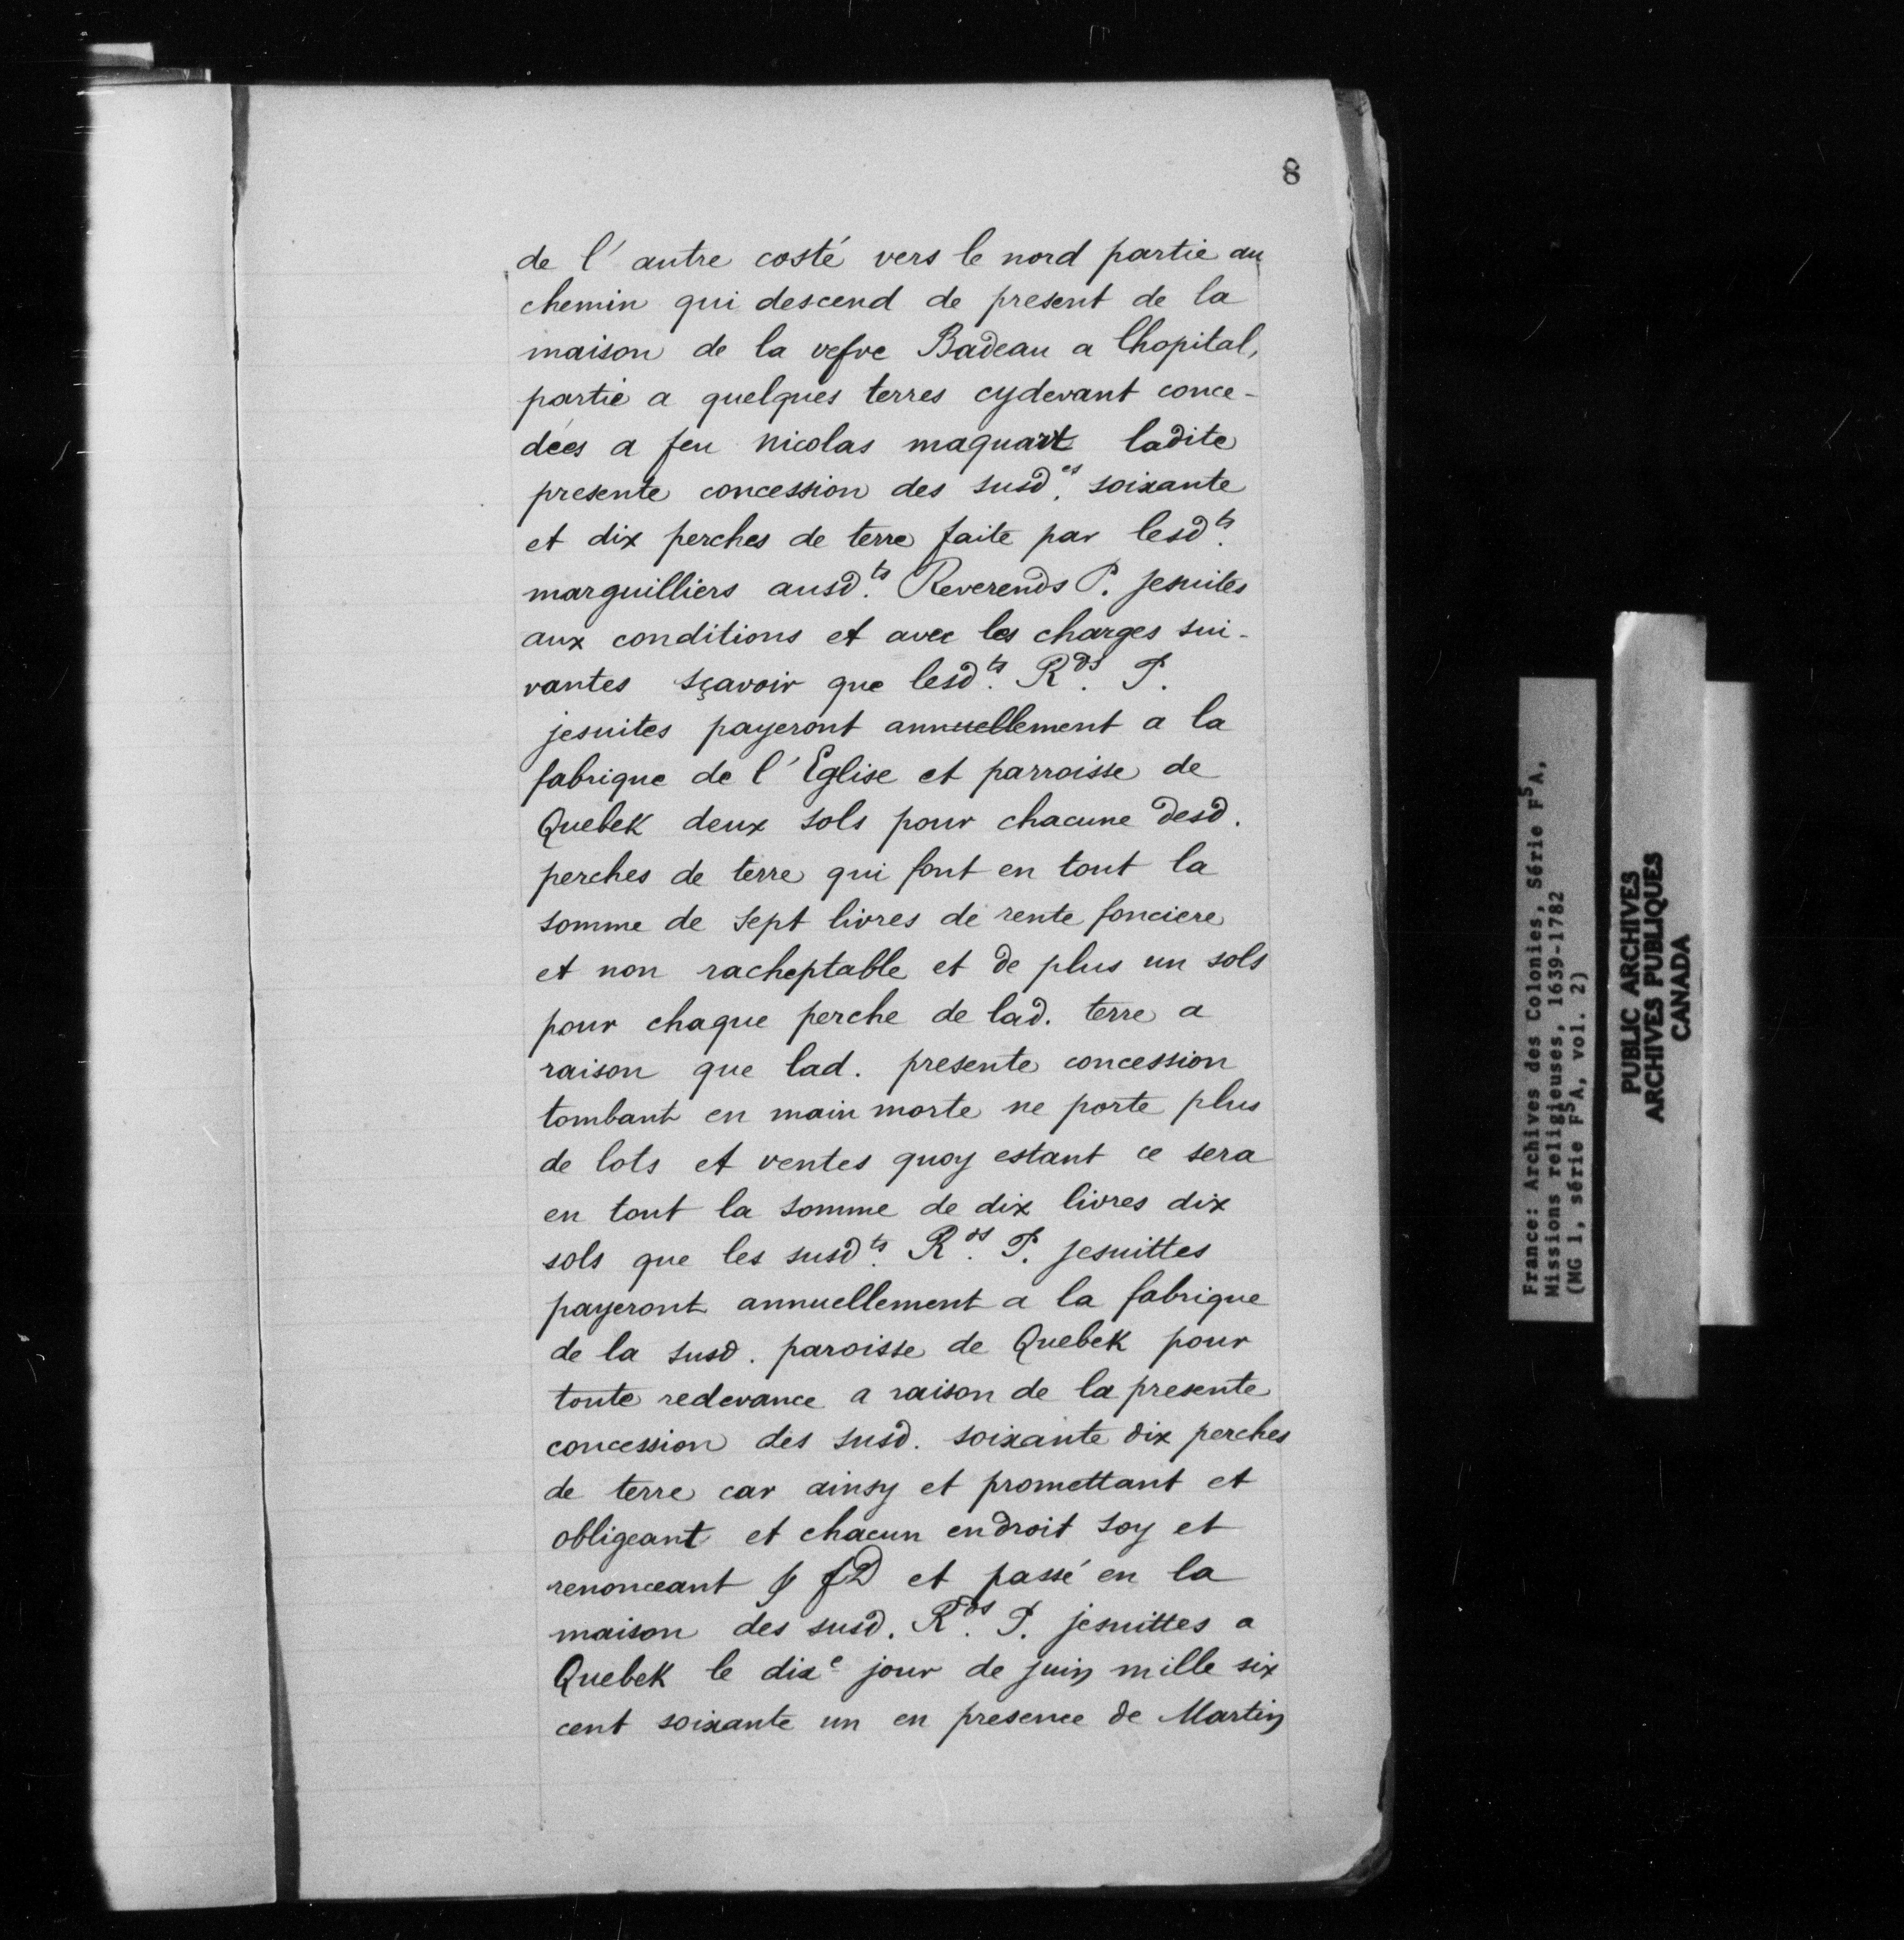 8
de l'autre costé vers le nord partie au
chemin qui descend de present de la
maison de la vefve Badeau a lhopital,
partie a quelques terres cydevant conce-
dées a feu nicolas maquart ladite
presente concession des susd.es soixante
et dix perches de terre faite par lesd.ts
marguilliers ausd.ts Reverends P. jesuites
aux conditions et avec les charges sui-
vantes sçavoir que lesd.ts R.ds P.
jesuites payeront annuellement a la
fabrique de l'Eglise et parroisse de
Quebek deux sols pour chacune desd.
perches de terre qui font en tout la
somme de sept livres de rente fonciere
et non racheptable et de plus un sols
pour chaque perche de lad. terre a
raison que lad. presente concession
tombant en main morte ne porte plus
de lots et ventes quoy estant ce sera
en tout la somme de dix livres dix
sols que les susd.ts R.ds P. jesuittes
payeront annuellement a la fabrique
de la susd. paroisse de Quebek pour
toute redevance a raison de la presente
concession des susd. soixante dix perches
de terre car ainsy et promettant et
obligeant et chacun endroit soy et
renonceant et passé en la
maison des susd. R.ds P. jesuittes a
Quebek le dixe jour de juin mille six
cent soixante un en presence de Martin
France: Archives des Colonies, Série F5A,
Missions religieuses, 1639-1782
(MG 1, série F5A, vol. 2)
PUBLIC ARCHIVES
ARCHIVES PUBLIQUES
CANADA